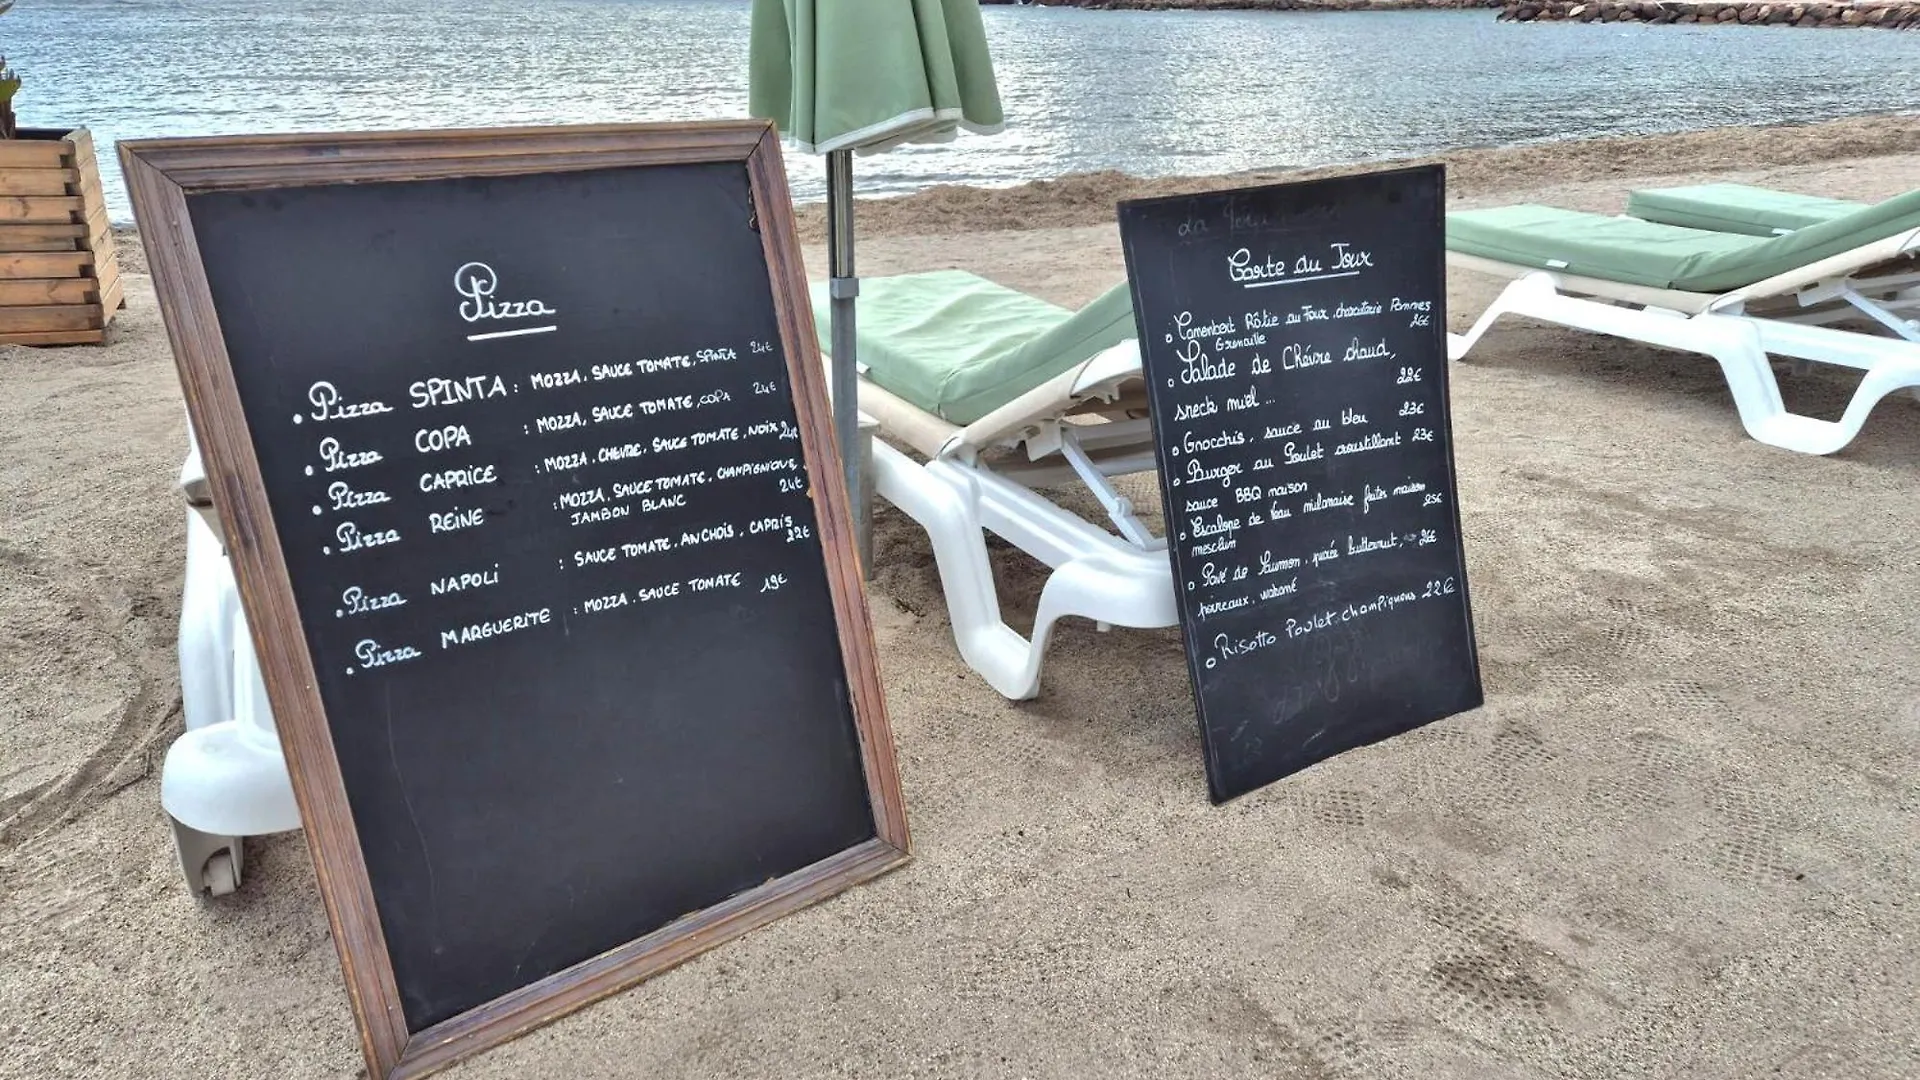 Pizza
Pizza SPINTA : MOZZA, SAUCE TOMATE, SPINTA 24€
Pizza COPA : MOZZA, SAUCE TOMATE, COPA 24€
Pizza CAPRICE : MOZZA, CHEVRE, SAUCE TOMATE, NOIX 24€
Pizza REINE : MOZZA, SAUCE TOMATE, CHAMPIGNIQUE,
JAMBON BLANC 24€
Pizza NAPOLI : SAUCE TOMATE, ANCHOIS, CAPRIS 22€
Pizza MARGUERITE : MOZZA, SAUCE TOMATE 19€
Carte du Jour
Camenbert Rôtie au Four, charcuterie Pommes
Grenaille 26€
Salade de Chévre chaud,
sneck miel ... 22€
Gnocchis, sauce au bleu 23€
Burger au Poulet croustillant 23€
sauce BBQ maison
Escalope de Veau milanaise frites maison
mesclun 25€
Pavé de Saumon, purée butternut, 26€
poireaux,
Risotto Poulet champignons 22€